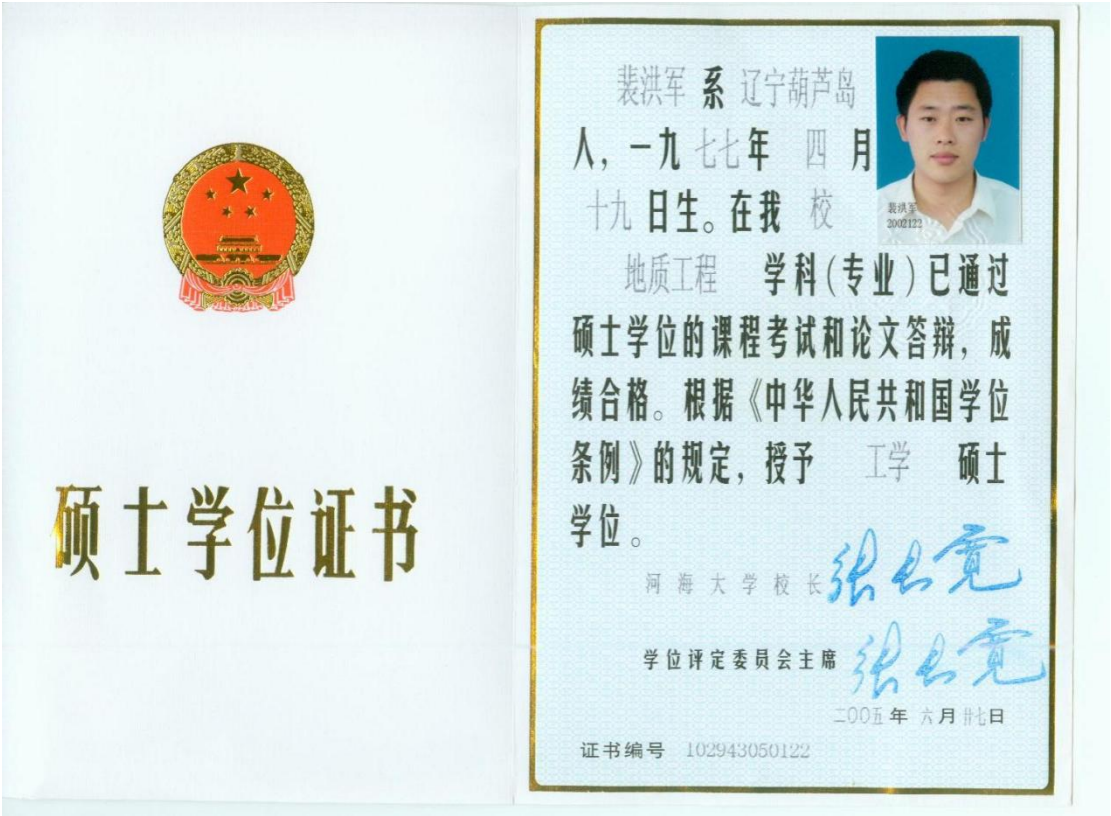 硕士学位证书
裴洪军 系 辽宁葫芦岛
人，一九 七七 年 四 月
十九 日生。在我 校
地质工程 学科（专业）已通过
硕士学位的课程考试和论文答辩，成
绩合格。根据《中华人民共和国学位
条例》的规定，授予 工学 硕士
学位。
裴洪军
2002122
河海大学校长 张长宽
学位评定委员会主席 张长宽
二〇〇五 年 六 月 廿七 日
证书编号 102943050122